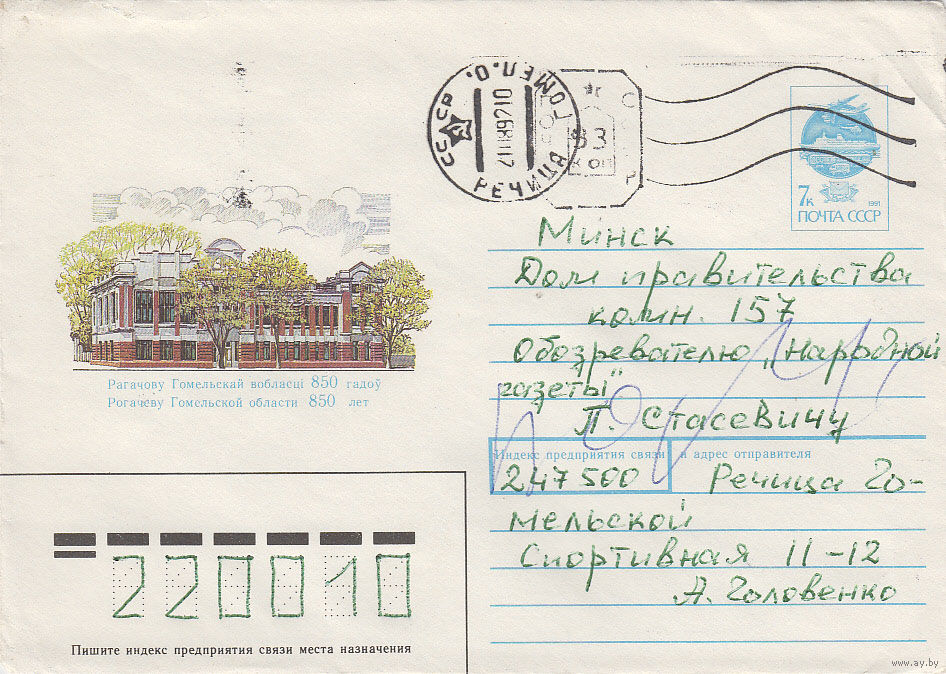 СССР
РЕЧИЦА ГОМЕЛ.О.
83
коп
7к
1991
ПОЧТА СССР
Минск
Дом правительства
комн. 157
Обозревателю „Народной
газеты"
П. Стасевичу
Рагачову Гомельскай вобласці 850 гадоў
Рогачеву Гомельской области 850 лет
Индекс предприятия связи и адрес отправителя
247500 Речица Го-
мельской
Спортивная 11-12
А. Головенко
220010
Пишите индекс предприятия связи места назначения
www.ay.by